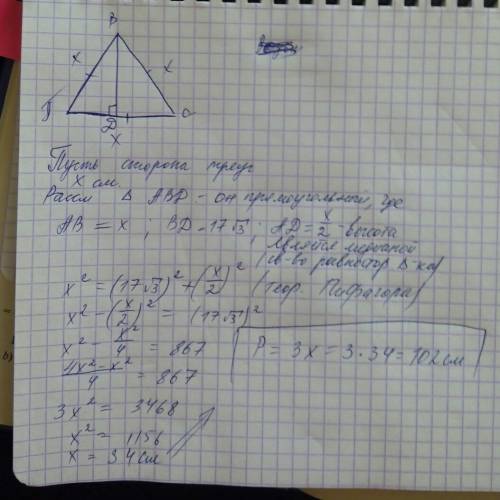 B
x
x
D
C
x
Пусть сторона треуг
x см.
Рассм Δ ABD - он прямоугольный, где
AB = x ; BD = 17√3 ; AD = x/2 - высота
является медианой
(св-во равностор Δ-ка)
x² = (17√3)² + (x/2)² (теор. Пифагора)
x² - (x/2)² = (17√3)²
x² - x²/4 = 867
(4x² - x²)/4 = 867
3x² = 3468
x² = 1156
x = 34 см
P = 3x = 3·34 = 102 см